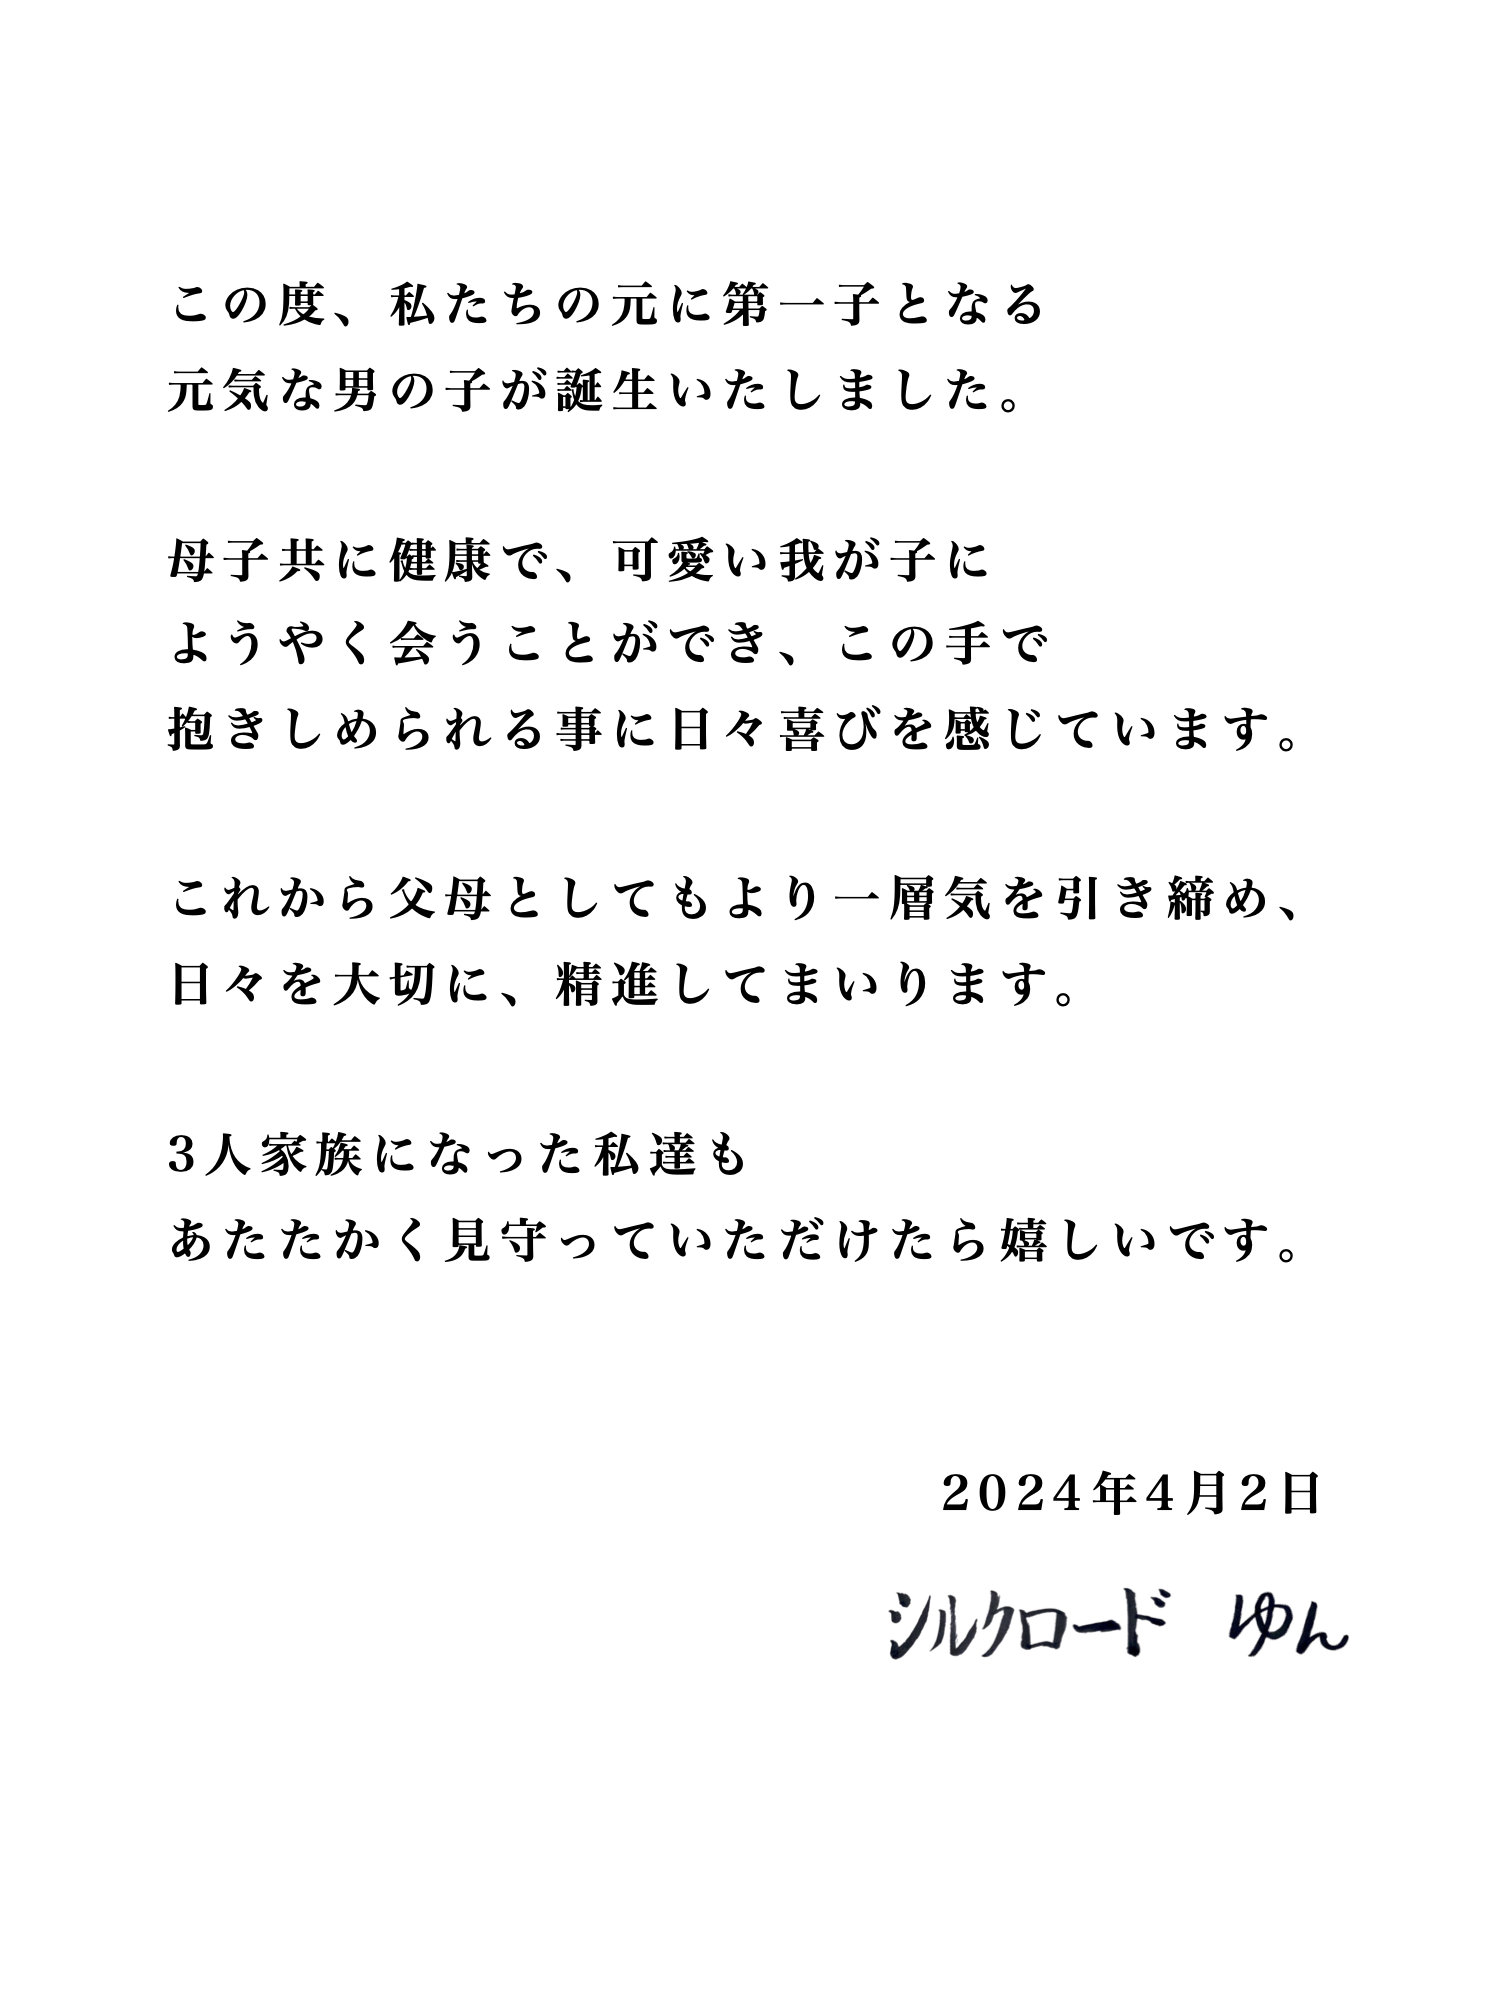 この度、私たちの元に第一子となる
元気な男の子が誕生いたしました。
母子共に健康で、可愛い我が子に
ようやく会うことができ、この手で
抱きしめられる事に日々喜びを感じています。
これから父母としてもより一層気を引き締め、
日々を大切に、精進してまいります。
3人家族になった私達も
あたたかく見守っていただけたら嬉しいです。
2024年4月2日
シルクロード　ゆん